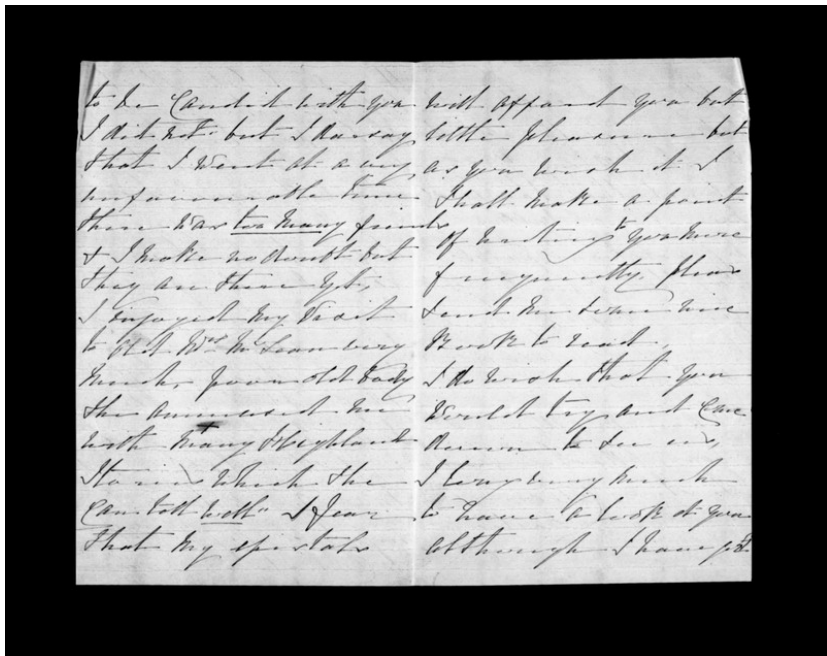 to be Candid with you
I did not but I daresay
that I went at a very
unfavourable time
there was too many friends
& I make no doubt but
they are there yet,
I enjoyed my visit
to Old Mrs McLean very
much, poor old body
She ammused me
with many Highland
Stories which She
Can tell well. I fear
that my epistals
will afford you but
little pleasure but
as you wish it I
Shall make a point
of writing to you more
frequently, please
Send me some nice
Book to read,
I do wish that you
would try and Come
down to See us,
I long very much
to have a look at you
although I have